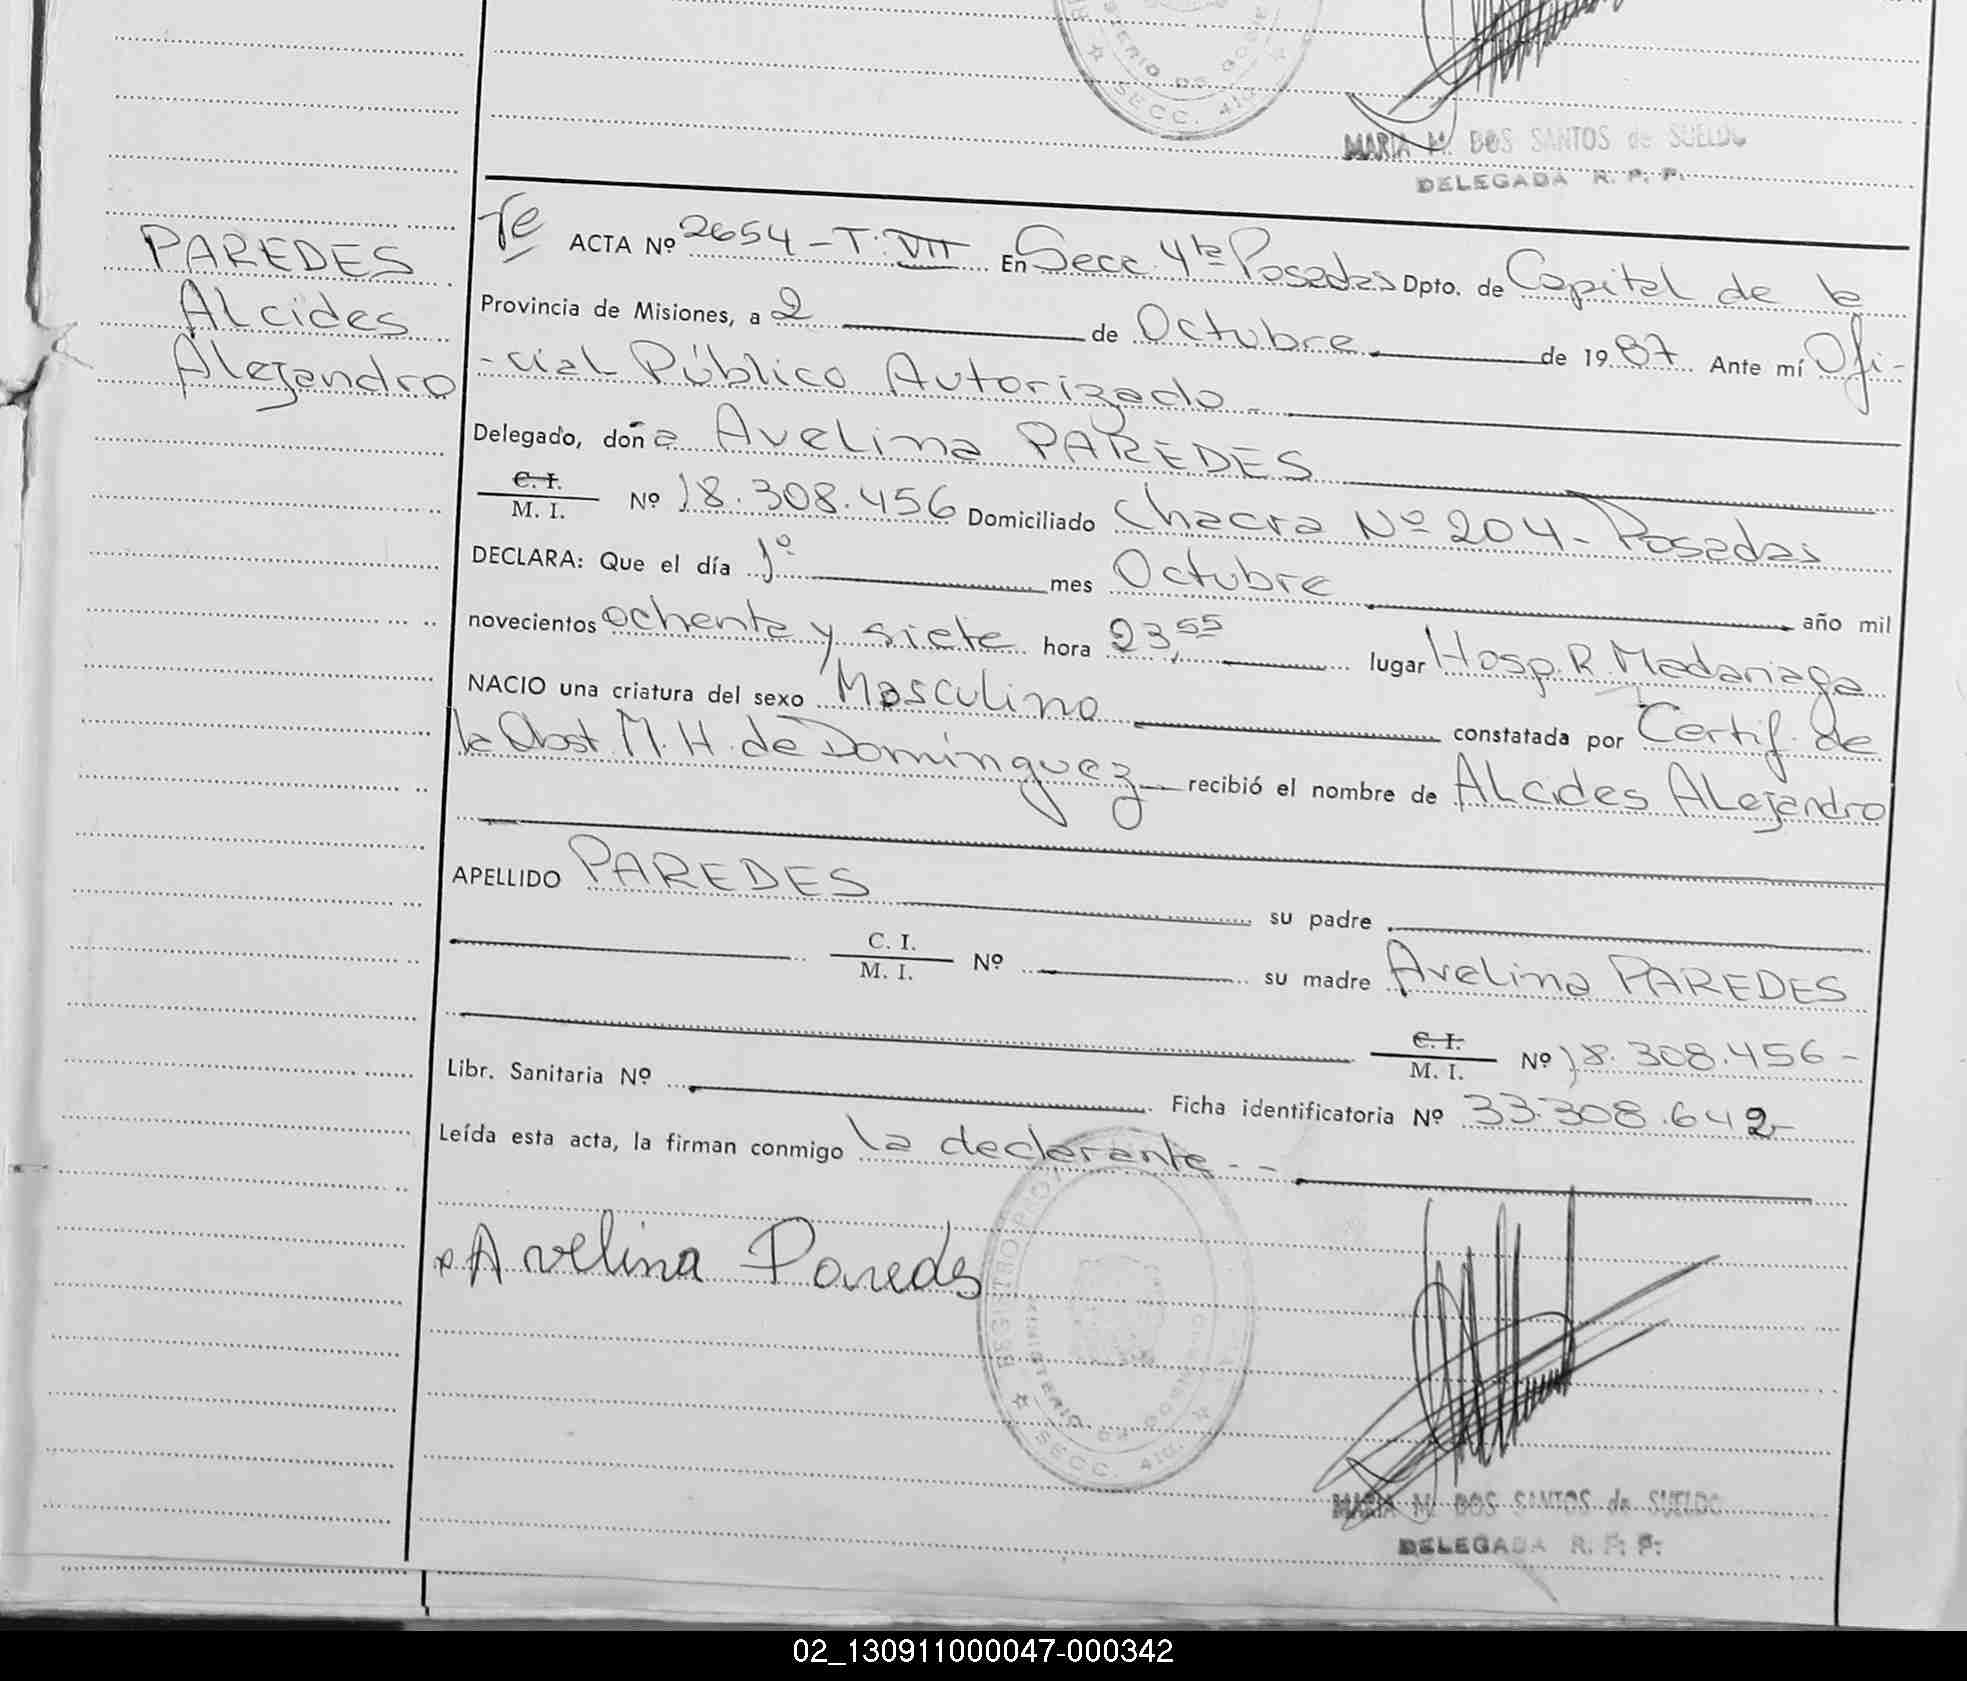 SECC. 4ta.
MARIA M. DOS SANTOS de SUELDO
DELEGADA R. P. P.
PAREDES
Alcides
Alejandro
ACTA Nº 2654 - T: VII En Secc. 4ta Posadas Dpto. de Capital de la
Provincia de Misiones, a 2 de Octubre de 1987 Ante mí Ofi-
-cial Público Autorizado -
Delegado, doña Avelina PAREDES
C. I.
M. I. Nº 18.308.456 Domiciliado Chacra Nº 204 - Posadas
DECLARA: Que el día 1º mes Octubre año mil
novecientos ochenta y siete hora 23,55 lugar Hosp. R. Madariaga
NACIO una criatura del sexo Masculino constatada por Certif. de
la Obst. M. H. de Domínguez recibió el nombre de Alcides Alejandro
APELLIDO PAREDES su padre
C. I.
M. I. Nº su madre Avelina PAREDES
C. I.
M. I. Nº 18.308.456 -
Libr. Sanitaria Nº Ficha identificatoria Nº 33.308.642-
Leída esta acta, la firman conmigo la declarante - -
Avelina Paredes
SECC. 4ta.
MARIA M. DOS SANTOS de SUELDO
DELEGADA R. P. P.
02_130911000047-000342